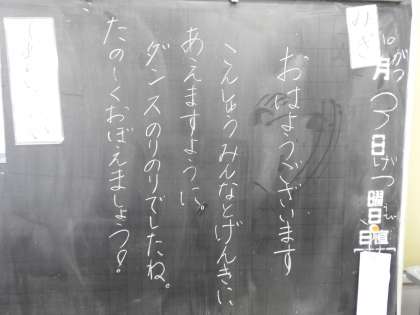 みぎ
10月 日 げつ曜日
日直
おはようございます
こんしゅうみんなとげんきに
あえますように。
ダンスのりのりでしたね。
たのしくおぼえましょう!